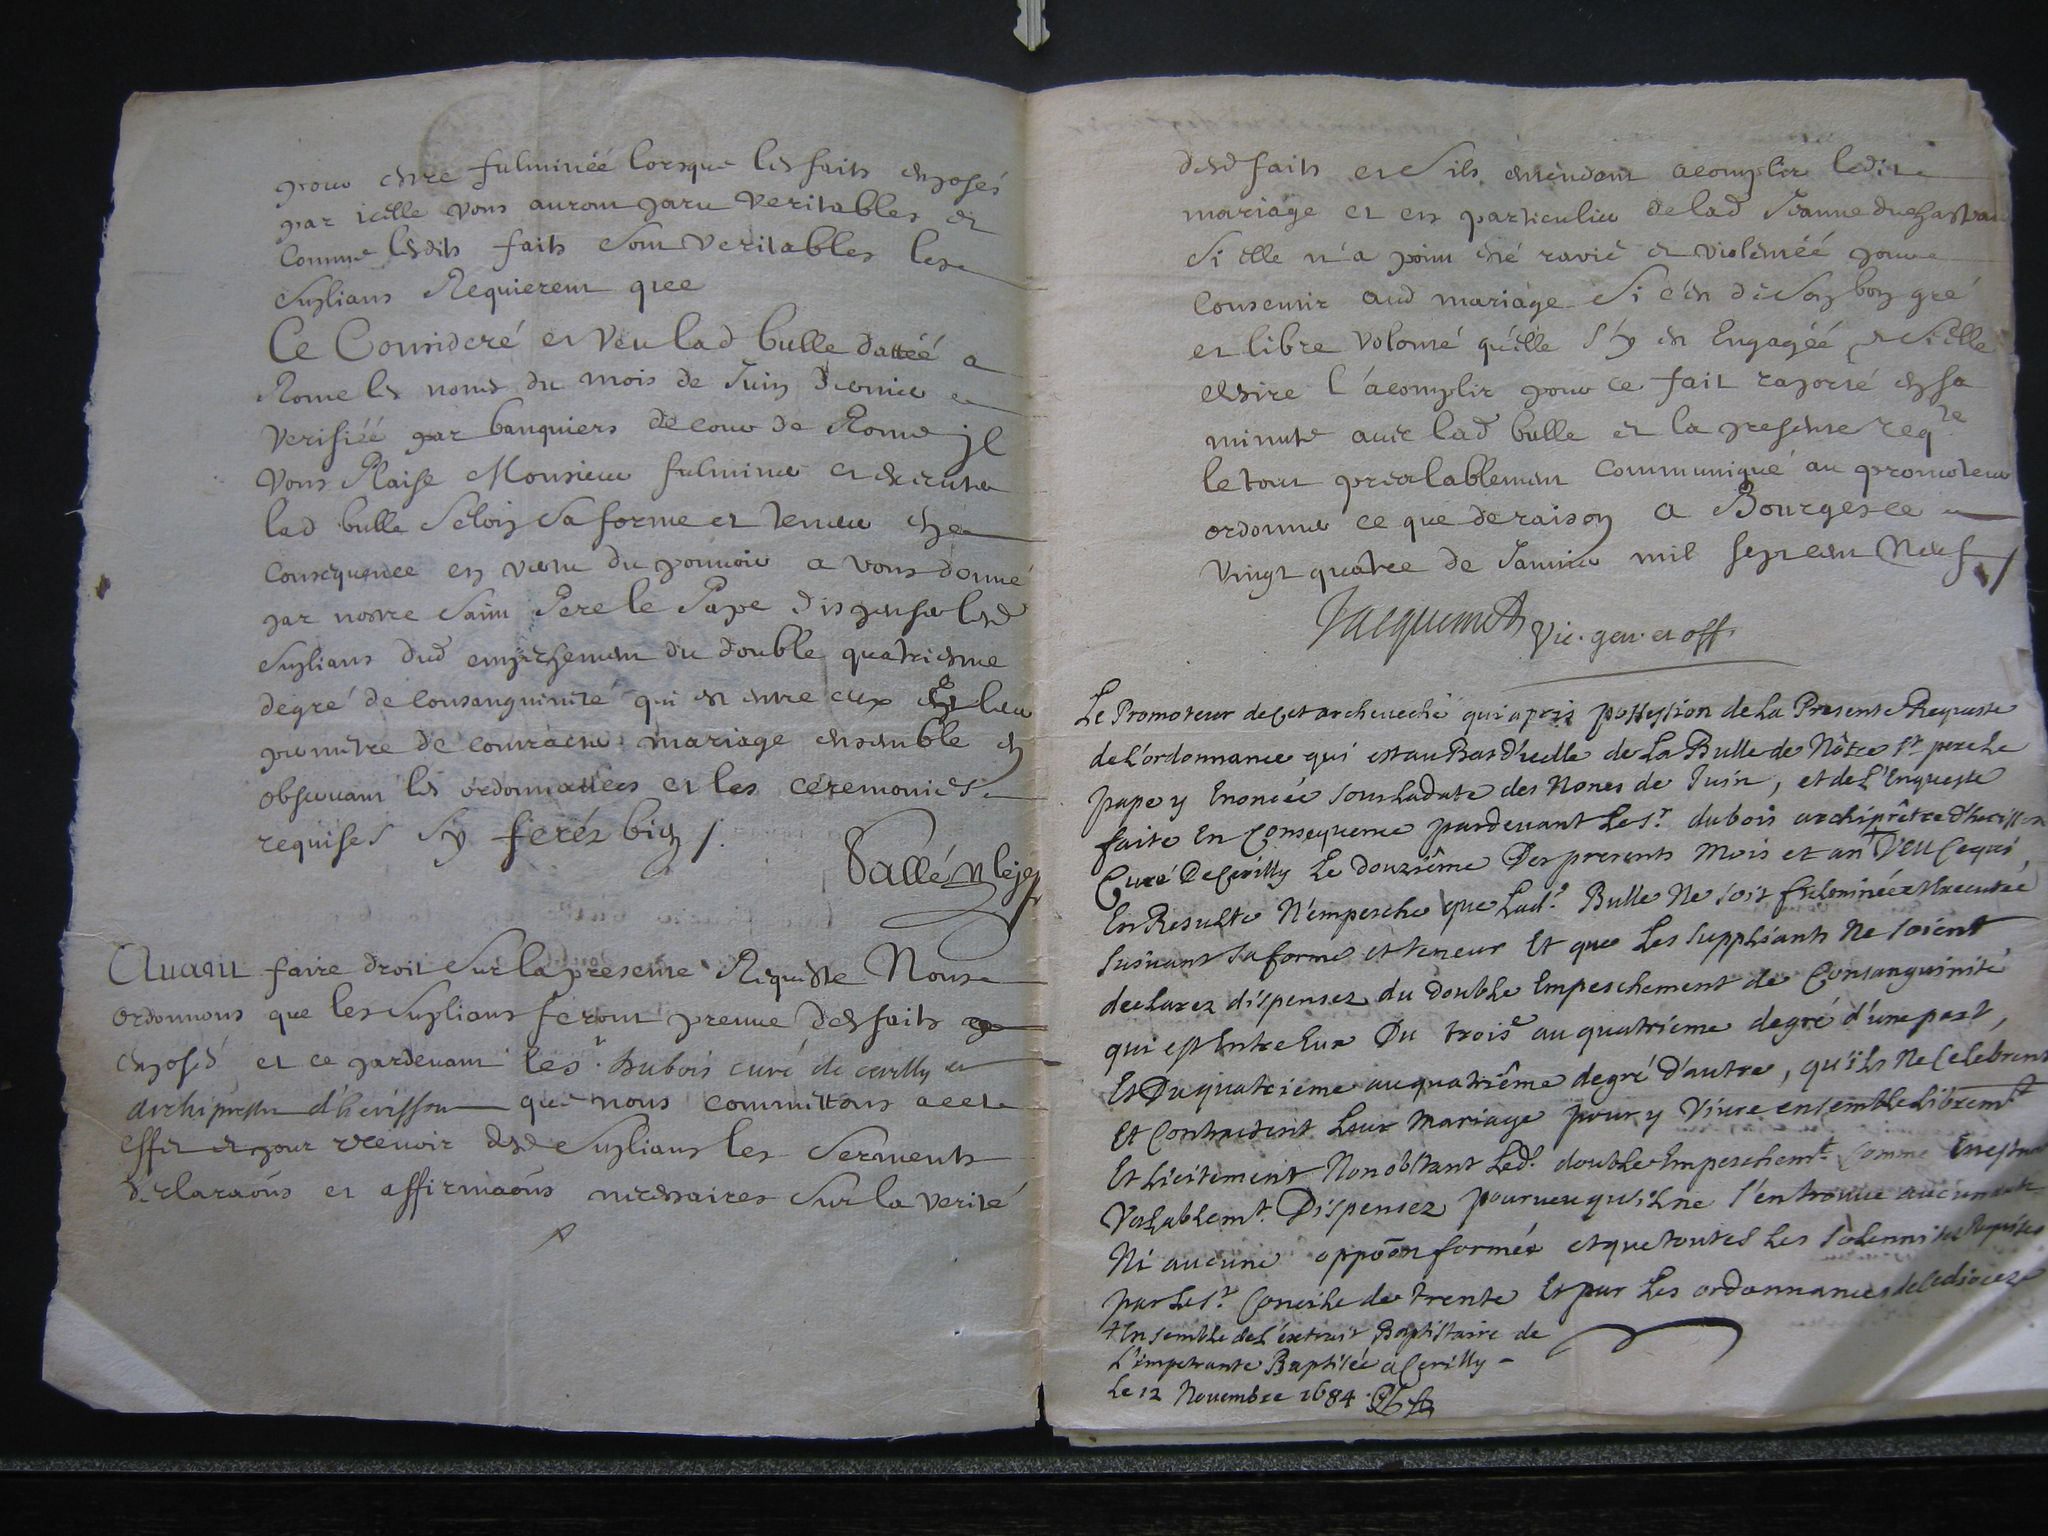 pour estre fulminéé lorsque les faits exposés
par icelle vous auront paru veritables et
Comme lesdits faits sont veritables les
suplians Requierent que
Ce Consideré et veu lad bulle dattéé a
Rome les nones du mois de Juin dernier
verifiéé par banquiers de cour de Rome jl
vous Plaise Monsieur fulminer et executer
lad bulle selon sa forme et teneur en
consequence en vertu du pouvoir a vous donné
par nostre saint Pere le Pape dispenser lesd
suplians dud empeschement du double quatriesme
degré de consanguinité qui est entre eux et leur
permetre de contracter mariage ensemble en
observant les ordonnances et les céremonies
requises sy ferés bien /.
Avant faire droit sur la presente Requeste Nous
ordonnons que les suplians feront preuve desd faits
exposés et ce pardevant le sr. dubois curé de cerilly et
archiprestre d'herisson que nous committons a cet
effet et pour recevoir desd suplians les serments
declaraōns et affirmaōns necessaires sur la verité
desd faits et s'ils entendent acomplir ledit
mariage et en particulier de lad Jeanne
si elle n'a point esté ravie et violentéé pour
consentir aud mariage si c'est de son bon gré
et libre volonté qu'elle s'y est Engagéé et si elle
desire l'acomplir pour ce fait raporté en sa
minute avec lad bulle et la presente reqte
le tout prealablement communiqué au promoteur
ordonner ce que de raison a Bourges ce
vingt quatre de Janvier mil sept cent neuf /
Jacquemet vic. gen. et off.
Le Promoteur de cet archeveché qui a pris possession de La Presente Requeste
de L'ordonnance qui est au Bas d'icelle de La Bulle de Nôtre st. pere Le
pape y Enoncée sous La date des Nones de Juin, et de L'Enqueste
faite En Consequence pardevant Le sr. dubois archiprêtre d'herisson
Curé De Cerilly Le douziême Des presents Mois et an + Veu Ce qui
En Resulte N'empesche que Lad. Bulle Ne soit fulminée et Executée
suivant sa forme et teneur Et que Les suppliants Ne soient
declarez dispensez du double Empeschement de Consanguinité
qui est Entre Eux Du troise au quatriême degré d'une part,
Et Du quatriême au quatriême degré d'autre, qu'ils Ne Celebrent
Et Contractent Leur Mariage pour y Vivre ensemble Libremt
Et Licitement Nonobstant Led. double Empeschemt. Comme En estant
Valablemt. Dispensez pourveu qu'il ne s'en trouve aucun autre
Ni aucune oppoōn formée et que toutes Les solennités Requises
par Le st. Concile de trente Et par Les ordonnances de Ce dioceze
+ Ensemble de L'extrait Baptistaire de
L'impetrante Baptisée a Cerilly -
Le 12 Novembre 1684.